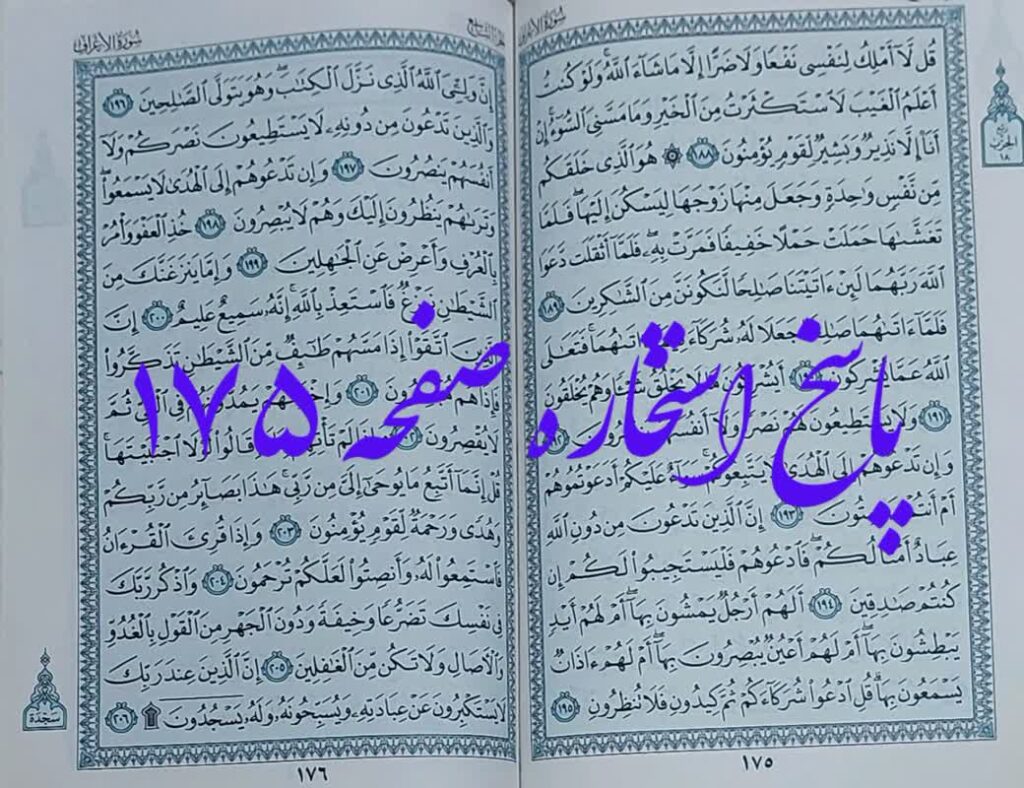 سُورَةُ الأَعْرَافِ
قُل لَّآ أَمْلِكُ لِنَفْسِى نَفْعًا وَلَا ضَرًّا إِلَّا مَا شَآءَ ٱللَّهُ ۚ وَلَوْ كُنتُ
أَعْلَمُ ٱلْغَيْبَ لَٱسْتَكْثَرْتُ مِنَ ٱلْخَيْرِ وَمَا مَسَّنِىَ ٱلسُّوٓءُ ۚ إِنْ
أَنَا۠ إِلَّا نَذِيرٌ وَبَشِيرٌ لِّقَوْمٍ يُؤْمِنُونَ ١٨٨ ۞ هُوَ ٱلَّذِى خَلَقَكُم
مِّن نَّفْسٍ وَٰحِدَةٍ وَجَعَلَ مِنْهَا زَوْجَهَا لِيَسْكُنَ إِلَيْهَا ۖ فَلَمَّا
تَغَشَّىٰهَا حَمَلَتْ حَمْلًا خَفِيفًا فَمَرَّتْ بِهِۦ ۖ فَلَمَّآ أَثْقَلَت دَّعَوَا
ٱللَّهَ رَبَّهُمَا لَئِنْ ءَاتَيْتَنَا صَٰلِحًا لَّنَكُونَنَّ مِنَ ٱلشَّٰكِرِينَ ١٨٩
فَلَمَّآ ءَاتَىٰهُمَا صَٰلِحًا جَعَلَا لَهُۥ شُرَكَآءَ فِيمَآ ءَاتَىٰهُمَا ۚ فَتَعَٰلَى
ٱللَّهُ عَمَّا يُشْرِكُونَ ١٩٠ أَيُشْرِكُونَ مَا لَا يَخْلُقُ شَيْـًٔا وَهُمْ يُخْلَقُونَ
١٩١ وَلَا يَسْتَطِيعُونَ لَهُمْ نَصْرًا وَلَآ أَنفُسَهُمْ يَنصُرُونَ ١٩٢
وَإِن تَدْعُوهُمْ إِلَى ٱلْهُدَىٰ لَا يَتَّبِعُوكُمْ ۚ سَوَآءٌ عَلَيْكُمْ أَدَعَوْتُمُوهُمْ
أَمْ أَنتُمْ صَٰمِتُونَ ١٩٣ إِنَّ ٱلَّذِينَ تَدْعُونَ مِن دُونِ ٱللَّهِ
عِبَادٌ أَمْثَالُكُمْ ۖ فَٱدْعُوهُمْ فَلْيَسْتَجِيبُوا۟ لَكُمْ إِن
كُنتُمْ صَٰدِقِينَ ١٩٤ أَلَهُمْ أَرْجُلٌ يَمْشُونَ بِهَآ ۖ أَمْ لَهُمْ أَيْدٍ
يَبْطِشُونَ بِهَآ ۖ أَمْ لَهُمْ أَعْيُنٌ يُبْصِرُونَ بِهَآ ۖ أَمْ لَهُمْ ءَاذَانٌ
يَسْمَعُونَ بِهَا ۗ قُلِ ٱدْعُوا۟ شُرَكَآءَكُمْ ثُمَّ كِيدُونِ فَلَا تُنظِرُونِ ١٩٥
١٧٥
ربع
الحزب
١٨
سُورَةُ الأَعْرَافِ
إِنَّ وَلِـِّۧىَ ٱللَّهُ ٱلَّذِى نَزَّلَ ٱلْكِتَٰبَ ۖ وَهُوَ يَتَوَلَّى ٱلصَّٰلِحِينَ ١٩٦
وَٱلَّذِينَ تَدْعُونَ مِن دُونِهِۦ لَا يَسْتَطِيعُونَ نَصْرَكُمْ وَلَآ
أَنفُسَهُمْ يَنصُرُونَ ١٩٧ وَإِن تَدْعُوهُمْ إِلَى ٱلْهُدَىٰ لَا يَسْمَعُوا۟ ۖ
وَتَرَىٰهُمْ يَنظُرُونَ إِلَيْكَ وَهُمْ لَا يُبْصِرُونَ ١٩٨ خُذِ ٱلْعَفْوَ وَأْمُرْ
بِٱلْعُرْفِ وَأَعْرِضْ عَنِ ٱلْجَٰهِلِينَ ١٩٩ وَإِمَّا يَنزَغَنَّكَ مِنَ
ٱلشَّيْطَٰنِ نَزْغٌ فَٱسْتَعِذْ بِٱللَّهِ ۚ إِنَّهُۥ سَمِيعٌ عَلِيمٌ ٢٠٠ إِنَّ
ٱلَّذِينَ ٱتَّقَوْا۟ إِذَا مَسَّهُمْ طَٰٓئِفٌ مِّنَ ٱلشَّيْطَٰنِ تَذَكَّرُوا۟
فَإِذَا هُم مُّبْصِرُونَ ٢٠١ وَإِخْوَٰنُهُمْ يَمُدُّونَهُمْ فِى ٱلْغَىِّ ثُمَّ
لَا يُقْصِرُونَ ٢٠٢ وَإِذَا لَمْ تَأْتِهِم بِـَٔايَةٍ قَالُوا۟ لَوْلَا ٱجْتَبَيْتَهَا ۚ
قُلْ إِنَّمَآ أَتَّبِعُ مَا يُوحَىٰٓ إِلَىَّ مِن رَّبِّى ۚ هَٰذَا بَصَآئِرُ مِن رَّبِّكُمْ
وَهُدًى وَرَحْمَةٌ لِّقَوْمٍ يُؤْمِنُونَ ٢٠٣ وَإِذَا قُرِئَ ٱلْقُرْءَانُ
فَٱسْتَمِعُوا۟ لَهُۥ وَأَنصِتُوا۟ لَعَلَّكُمْ تُرْحَمُونَ ٢٠٤ وَٱذْكُر رَّبَّكَ
فِى نَفْسِكَ تَضَرُّعًا وَخِيفَةً وَدُونَ ٱلْجَهْرِ مِنَ ٱلْقَوْلِ بِٱلْغُدُوِّ
وَٱلْءَاصَالِ وَلَا تَكُن مِّنَ ٱلْغَٰفِلِينَ ٢٠٥ إِنَّ ٱلَّذِينَ عِندَ رَبِّكَ
لَا يَسْتَكْبِرُونَ عَنْ عِبَادَتِهِۦ وَيُسَبِّحُونَهُۥ وَلَهُۥ يَسْجُدُونَ ۩ ٢٠٦
١٧٦
سَجْدَة
پاسخ استخاره صفحه ۱۷۵